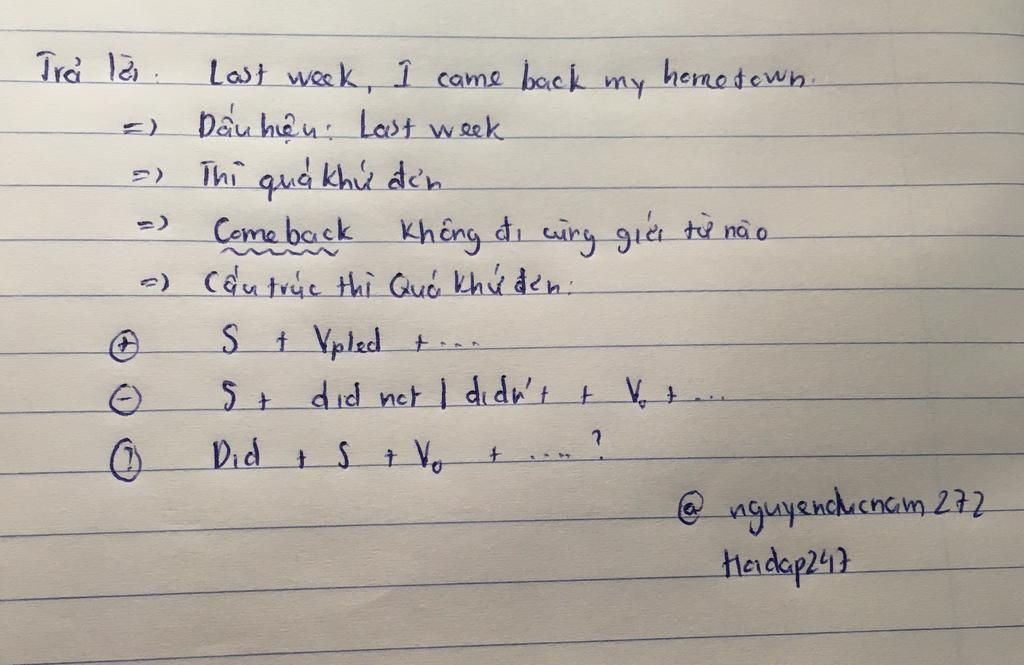 Trả lời: Last week, I came back my hometown.
=> Dấu hiệu: Last week
=> Thì quá khứ đơn
=> Come back không đi cùng giới từ nào
=> Cấu trúc thì Quá khứ đơn:
(+) S + Vp1ed + ...
(-) S + did not / didn't + V₀ + ...
(?) Did + S + V₀ + ....?
@ nguyenducnam272
Hoidap247